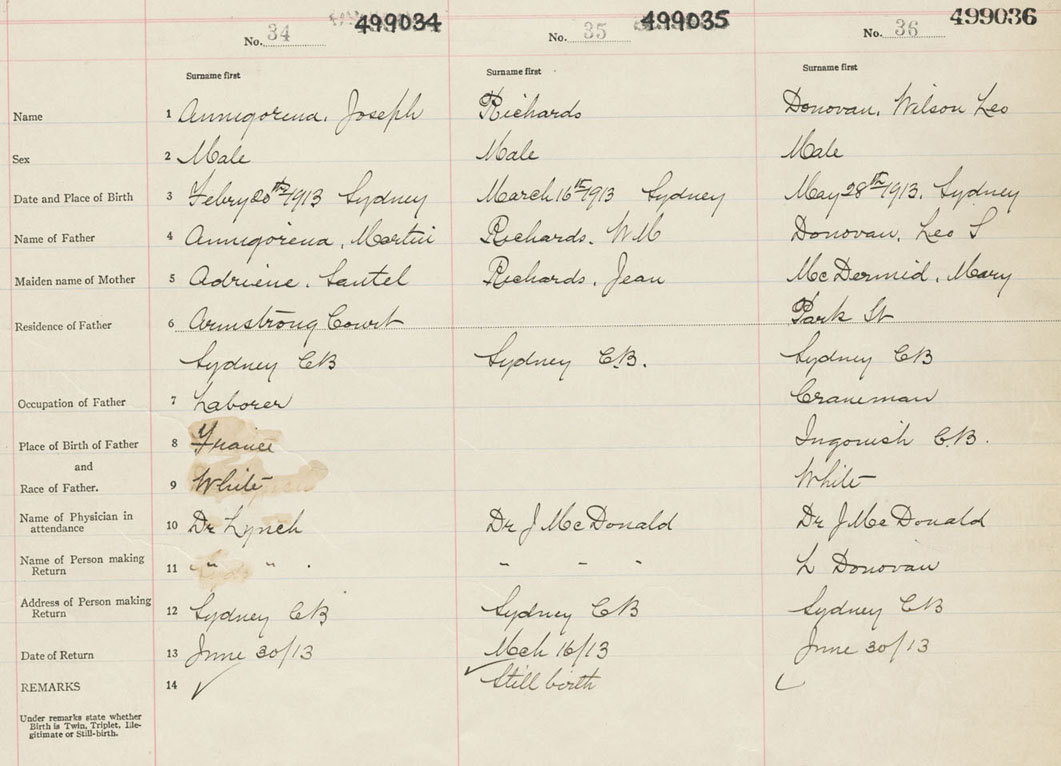 499034 499035 499036
No. 34 No. 35 No. 36
Surname first Surname first Surname first
Name 1 Annigorena, Joseph Richards Donovan, Wilson Leo
Sex 2 Male Male Male
Date and Place of Birth 3 Febry 20th 1913 Sydney March 16th 1913 Sydney May 28th 1913. Sydney
Name of Father 4 Annigorena, Martin Richards. WM Donovan, Leo S
Maiden name of Mother 5 Adriene. Santel Richards, Jean McDermid, Mary
Residence of Father 6 Armstrong Court Park St
Sydney CB Sydney C.B. Sydney CB
Occupation of Father 7 Laborer Craneman
Place of Birth of Father 8 France Ingonish C.B.
and
Race of Father. 9 White White
Name of Physician in attendance 10 Dr Lynch Dr J McDonald Dr J McDonald
Name of Person making Return 11 " " . " " " L Donovan
Address of Person making Return 12 Sydney CB Sydney CB Sydney CB
Date of Return 13 June 30/13 Mch 16/13 June 30/13
REMARKS 14 ✓ ✓ Still birth ✓
Under remarks state whether
Birth is Twin, Triplet, Ille-
gitimate or Still-birth.